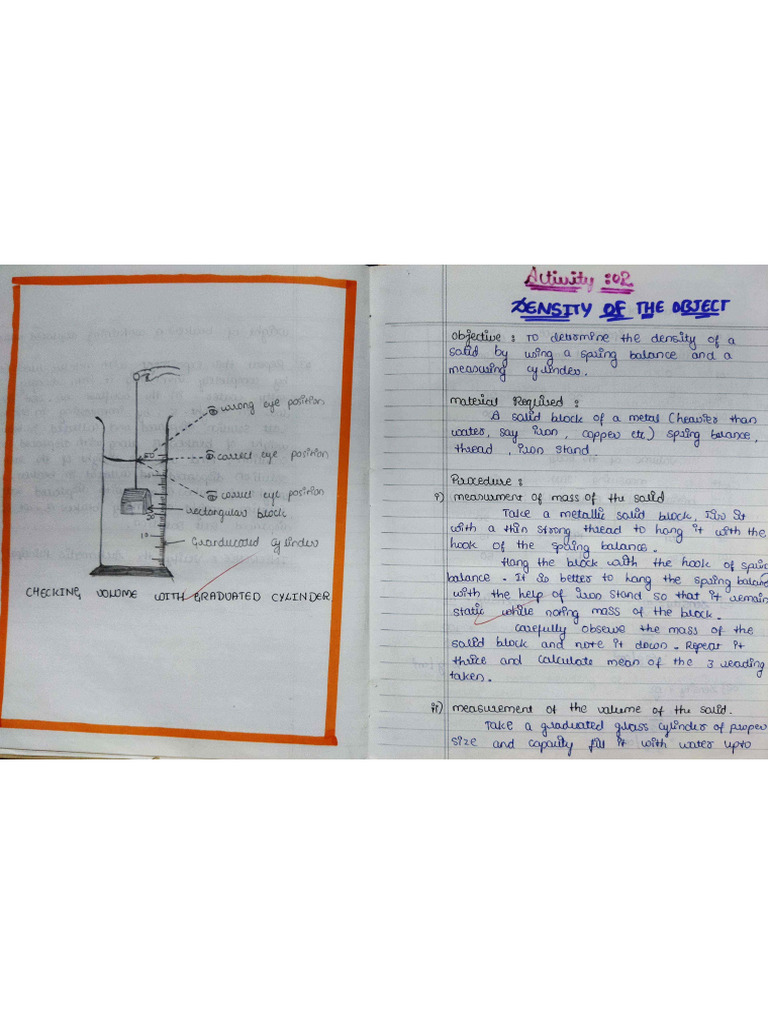 wrong eye position
correct eye position
correct eye position
rectangular block
10
Grarducated cylinder
CHECKING VOLUME WITH GRADUATED CYLINDER
Activity :02
DENSITY OF THE OBJECT
Objective : To determine the density of a
solid by using a spring balance and a
measuring cylinder.
Material Required :
A solid block of a metal (heavier than
water, say iron, copper etc) spring balance,
thread, iron stand
Procedure :
i) measurment of mass of the solid
Take a metallic solid block, Tie it
with a thin strong thread to hang it with the
hook of the spring balance.
Hang the block with the hook of spring
balance. It is better to hang the spring balanc
with the help of iron stand so that it remain
static while noting mass of the block.
Carefully observe the mass of the
solid block and note it down. Repeat it
thrice and calculate mean of the 3 reading
taken.
ii) measurement of the volume of the solid.
Take a graduated glass cylinder of proper
size and capacity fill it with water upto